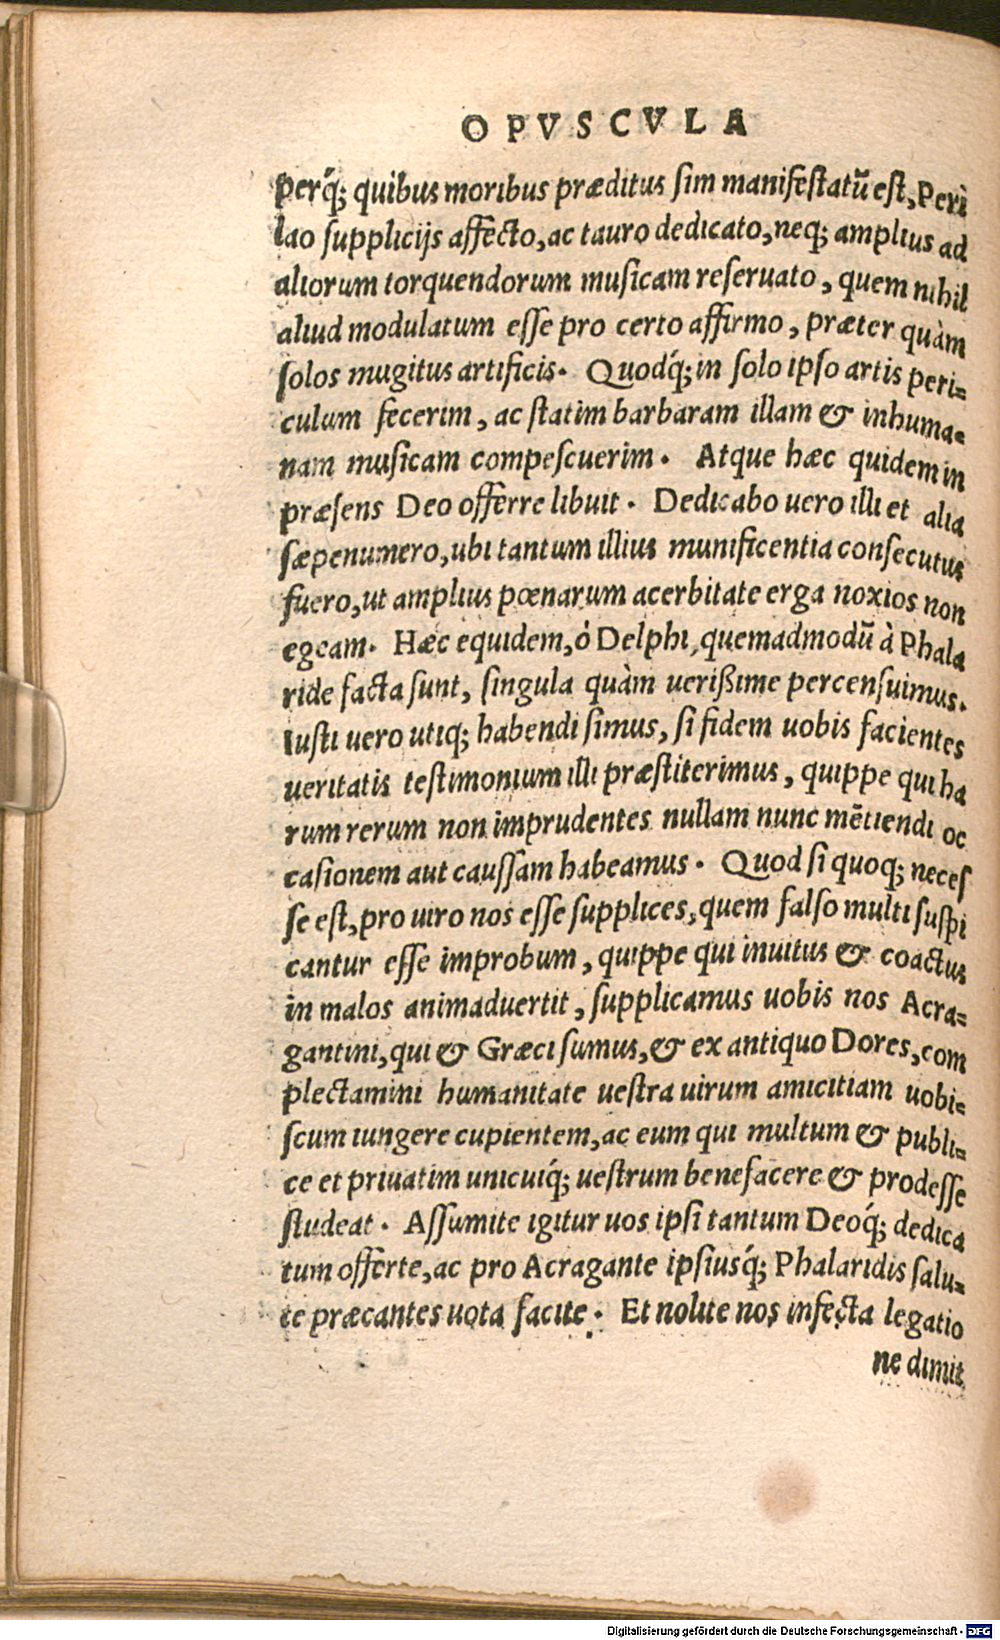 OPVSCVLA
perq́; quibus moribus præditus sim manifestatū est, Peri
lao supplicijs affecto, ac tauro dedicato, neq; amplius ad
aliorum torquendorum musicam reseruato, quem nihil
aliud modulatum esse pro certo affirmo, præter quàm
solos mugitus artificis. Quodq́; in solo ipso artis peri=
culum fecerim, ac statim barbaram illam & inhuma=
nam musicam compescuerim. Atque hæc quidem in
præsens Deo offerre libuit. Dedicabo uero illi et alia
sæpenumero, ubi tantum illius munificentia consecutus
fuero, ut amplius pœnarum acerbitate erga noxios non
egeam. Hæc equidem, ó Delphi, quemadmodū à Phala
ride facta sunt, singula quàm uerißime percensuimus.
Iusti uero utiq; habendi simus, si fidem uobis facientes
ueritatis testimonium illi præstiterimus, quippe qui ha
rum rerum non imprudentes nullam nunc mētiendi oc
casionem aut caussam habeamus. Quod si quoq; neces
se est, pro uiro nos esse supplices, quem falso multi suspi
cantur esse improbum, quippe qui inuitus & coactus
in malos animaduertit, supplicamus uobis nos Acra=
gantini, qui & Græci sumus, & ex antiquo Dores, com
plectamini humanitate uestra uirum amicitiam uobi=
scum iungere cupientem, ac eum qui multum & publi=
ce et priuatim unicuiq́; uestrum benefacere & prodesse
studeat. Assumite igitur uos ipsi tantum Deoq́; dedica
tum offerte, ac pro Acragante ipsiusq́; Phalaridis salu=
te præcantes uota facite. Et nolite nos infecta legatio
ne dimit
Digitalisierung gefördert durch die Deutsche Forschungsgemeinschaft - DFG